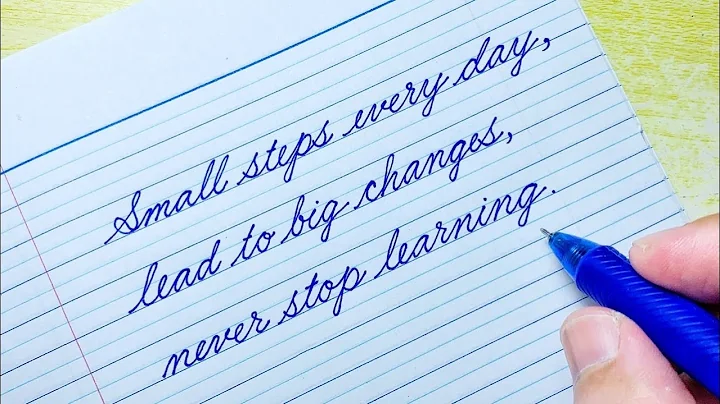 Small steps every day,
lead to big changes,
never stop learning.